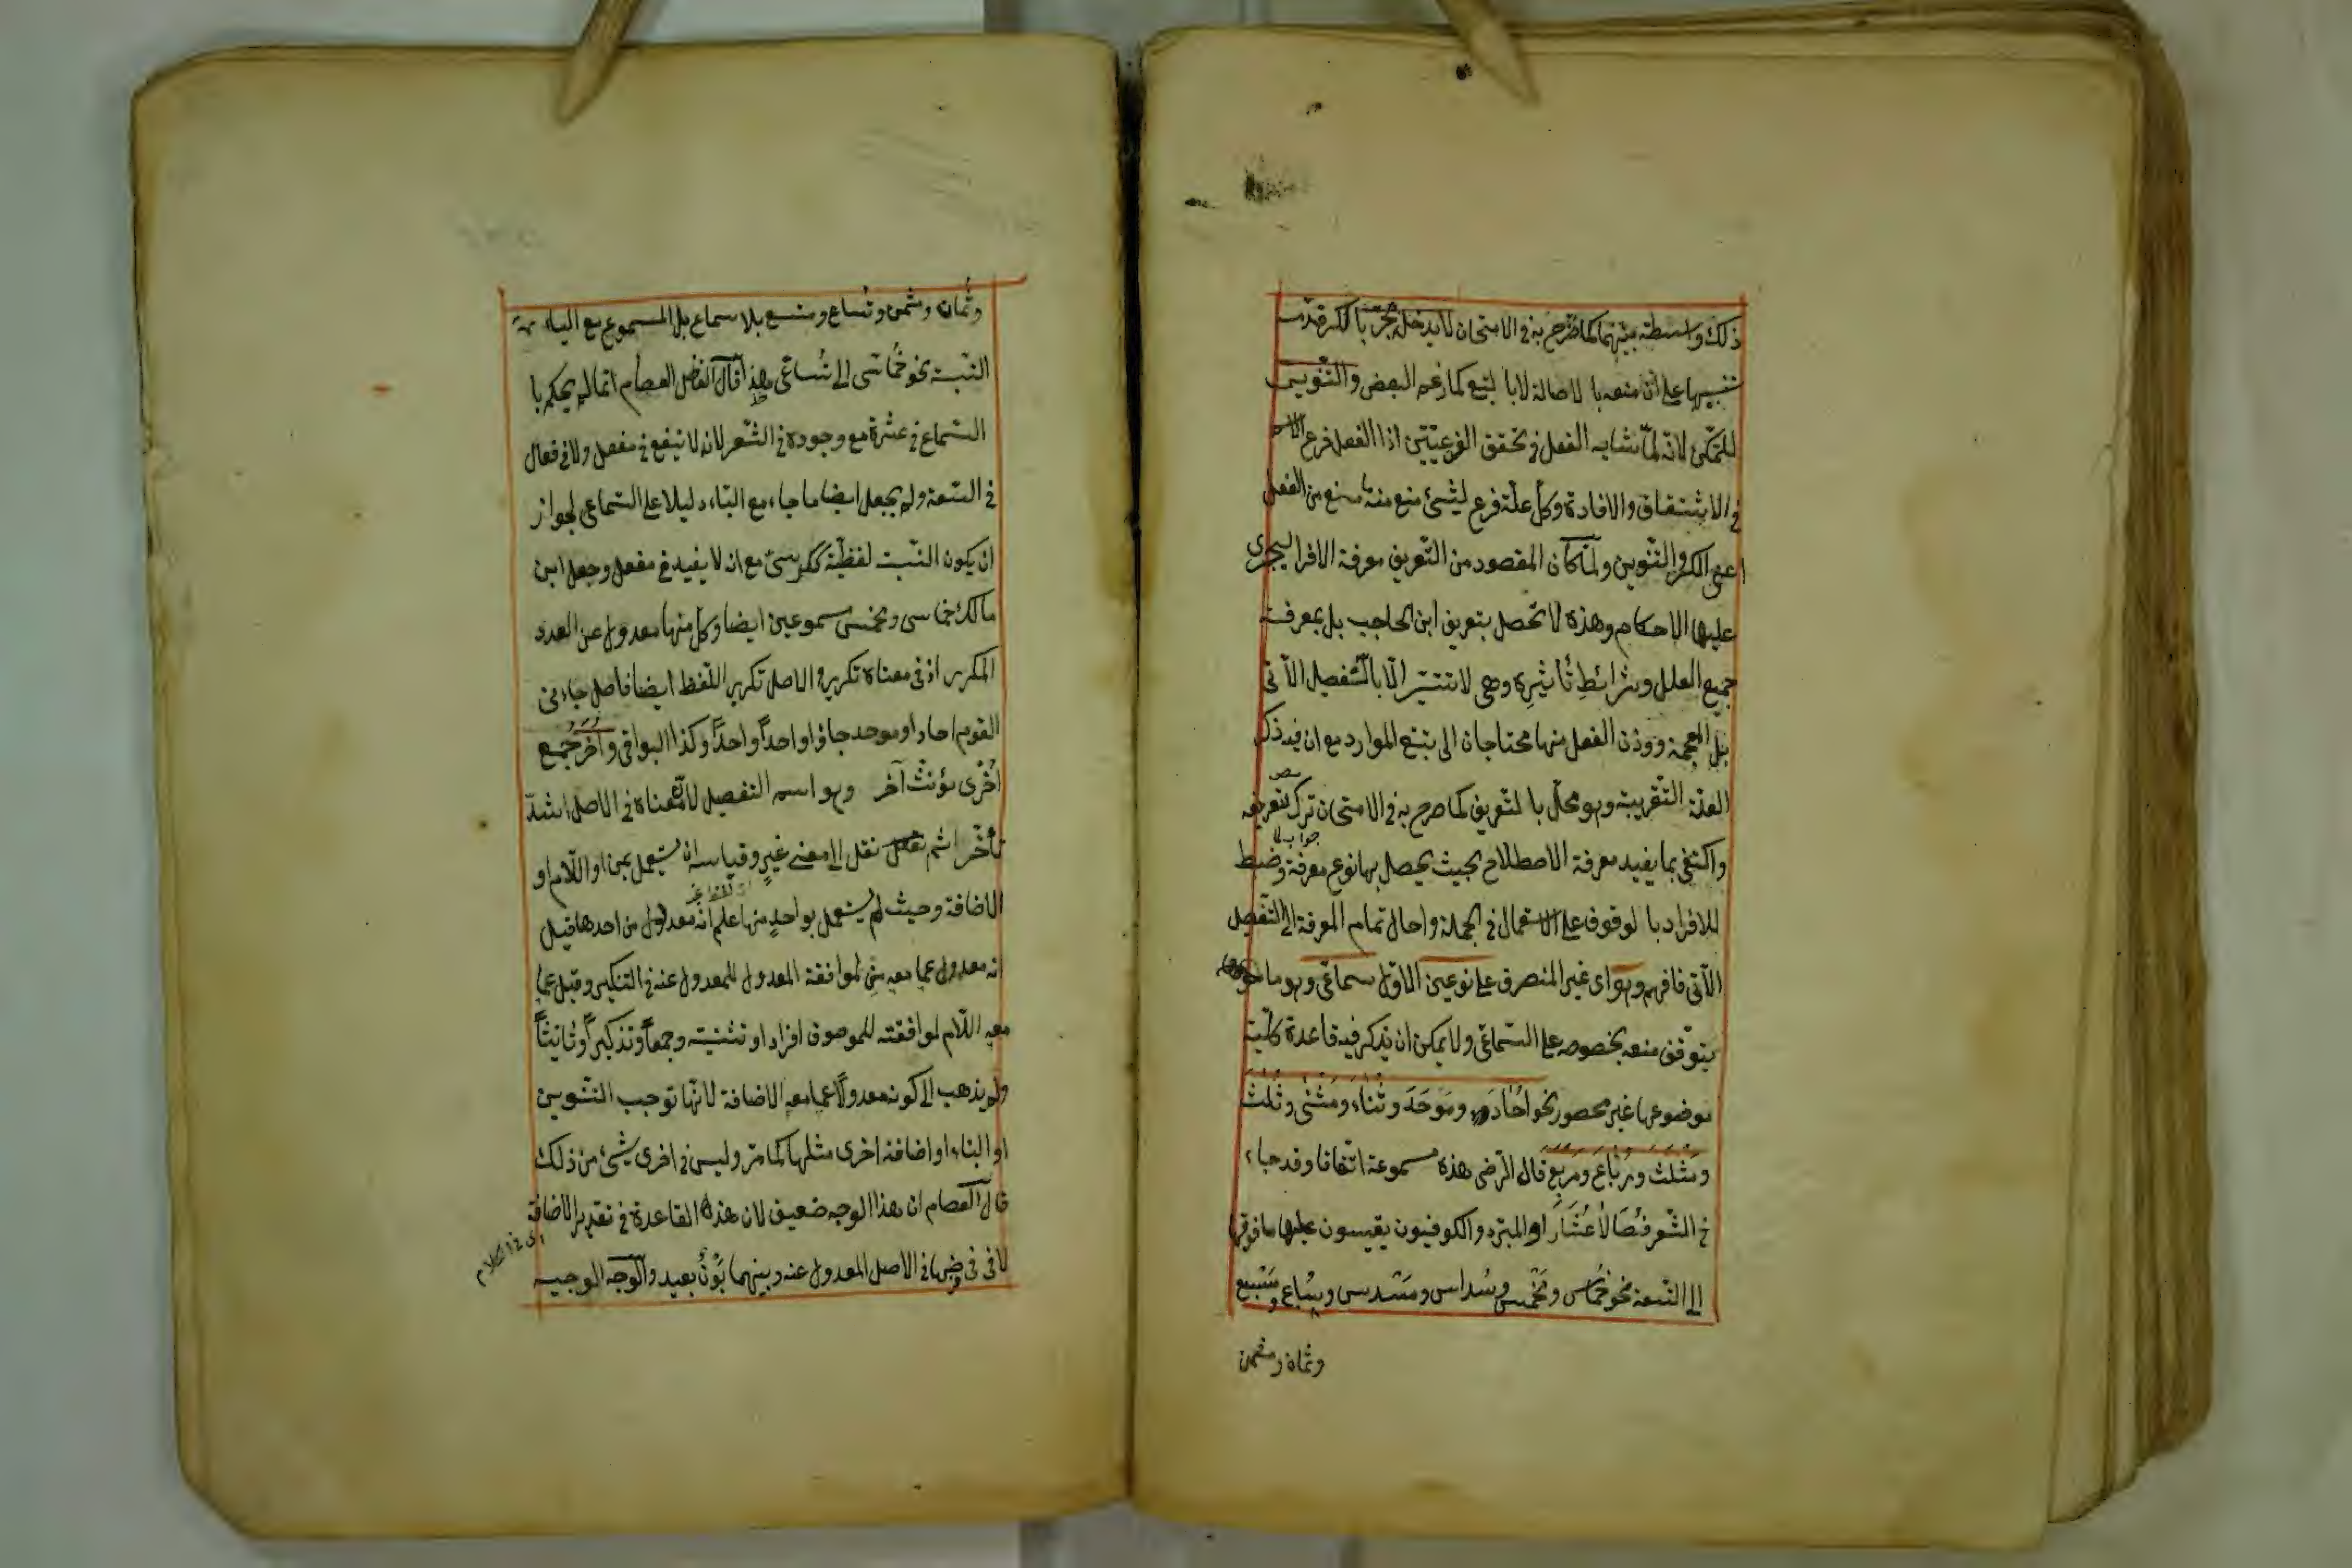 ذلك واسطة بينهما كما صرّح به في الامتحان لا يدخل بجرّ با لكسر قدّمه
تنبيها على ان منعه با لاصالة لا با لتبع كما زعم البعض والتنوين
للتمكن لانه لمّا شابه الفعل في تحقق الفرعيّتين اذا الفعل فرع الاسم
في الاشتقاق والافادة وكل علّة فرع لشئ منع منه ما منع من الفعل
اعني الكسر والتنوين ولمّا كان المقصود من التعريف معرفة الافراد ليجرى
عليها الاحكام وهذه لا تحصل بتعريف ابن الحاجب بل بمعرفة
جميع العلل وشرائط تأثيره وهي لا تتيسّر الّا بالتّفصيل الآتى
بل العجمة ووزن الفعل منها محتاجان الى تتبع الموارد مع ان فيه ذكر
العلة التقريبية وهو مخلّ با لتعريف كما صرح به في الامتحان ترك تعريفه
جواب لما
واكتفى بما يفيد معرفة الاصطلاح بحيث يحصل بها نوع معرفة وضبط
للافراد با لوقوف على الاستعمال في الجملة واحال تمام المعرفة الى التفصيل
الآتى فافهم وهو اى غير المنصرف على نوعين الاوّل سماعى وهو ما
يتوقف منعه بخصوصه على السّماعى ولا يمكن ان يذكر فيه قاعدة كليّة
موضوعها غير محصور نحو اُحَادَ ومَوْحَدَ وثُناءَ ومَثْنى وثُلثَ
ومَثلَثَ ورُبَاعَ ومَربَعَ قال الرّضى هذه مسموعة اتفاقا وقد جاء
في الشّعر خصالا عُشَارًا والمبرّد والكوفيون يقيسون عليها ما فوقها
الى التّسعة نحو خُماس ومَخْمس وسُداس ومَسْدس وسُباع ومَسْبع
وثمان ومثمن
وثُمان ومثمن وتساع ومتسع بلا سماع بل المسموع مع الياء
النّسبة نحو خُماسى الى تُساعى هذا قال الفاضل العصام انما لم يحكم با
السّماع في عشرة مع وجوده في الشّعر لانه لا ينفع في مفعل ولا في فعال
في السّعة ولم يجعل ايضا ما جاء مع الياء دليلا على السّماعى لجواز
ان يكون النّسبة لفظيّة ككرسىّ مع انه لا يفيد في مفعل وجعل ابن
مالك خماسى ومخمس مسموعين ايضا وكل منها معدول عن العدد
المكرر اذ في معناه تكرير والاصل تكرير اللّفظ ايضا فاصل جاءنى
القوم احاد او موحد جاؤا واحداً واحداً وكذا البواقى وأُخَرَ جُمَع
اُخْرى مؤنث آخر وهو اسم التفضيل لانّ معناه في الاصل اشدّ
تأخّرا ثم نقل الى معنى غير وقياسه ان يستعمل بمن او اللّام او
الاضافة وحيث لم يستعمل بواحدٍ منها علم انه معدول من احدها قيل
انه معدول عما معه من لموافقة المعدول للمعدول عنه في التنكير وقيل عما
معه اللّام لموافقته للموصوف افراد او تثنية وجمعاً وتذكيراً وتأنيثاً
ولم يذهب الى كونه معدولا عما معه الاضافة لانّها توجب التّنوين
او البناء او اضافة اخرى مثلها كما مرّ وليس في اخرى شئ من ذلك
قال العصام ان هذا الوجه ضعيف لان هذه القاعدة في تقدير الاضافة
لا في فرضها في الاصل المعدول عنه وبينهما بَوْنٌ بعيد والوجه الوجيه